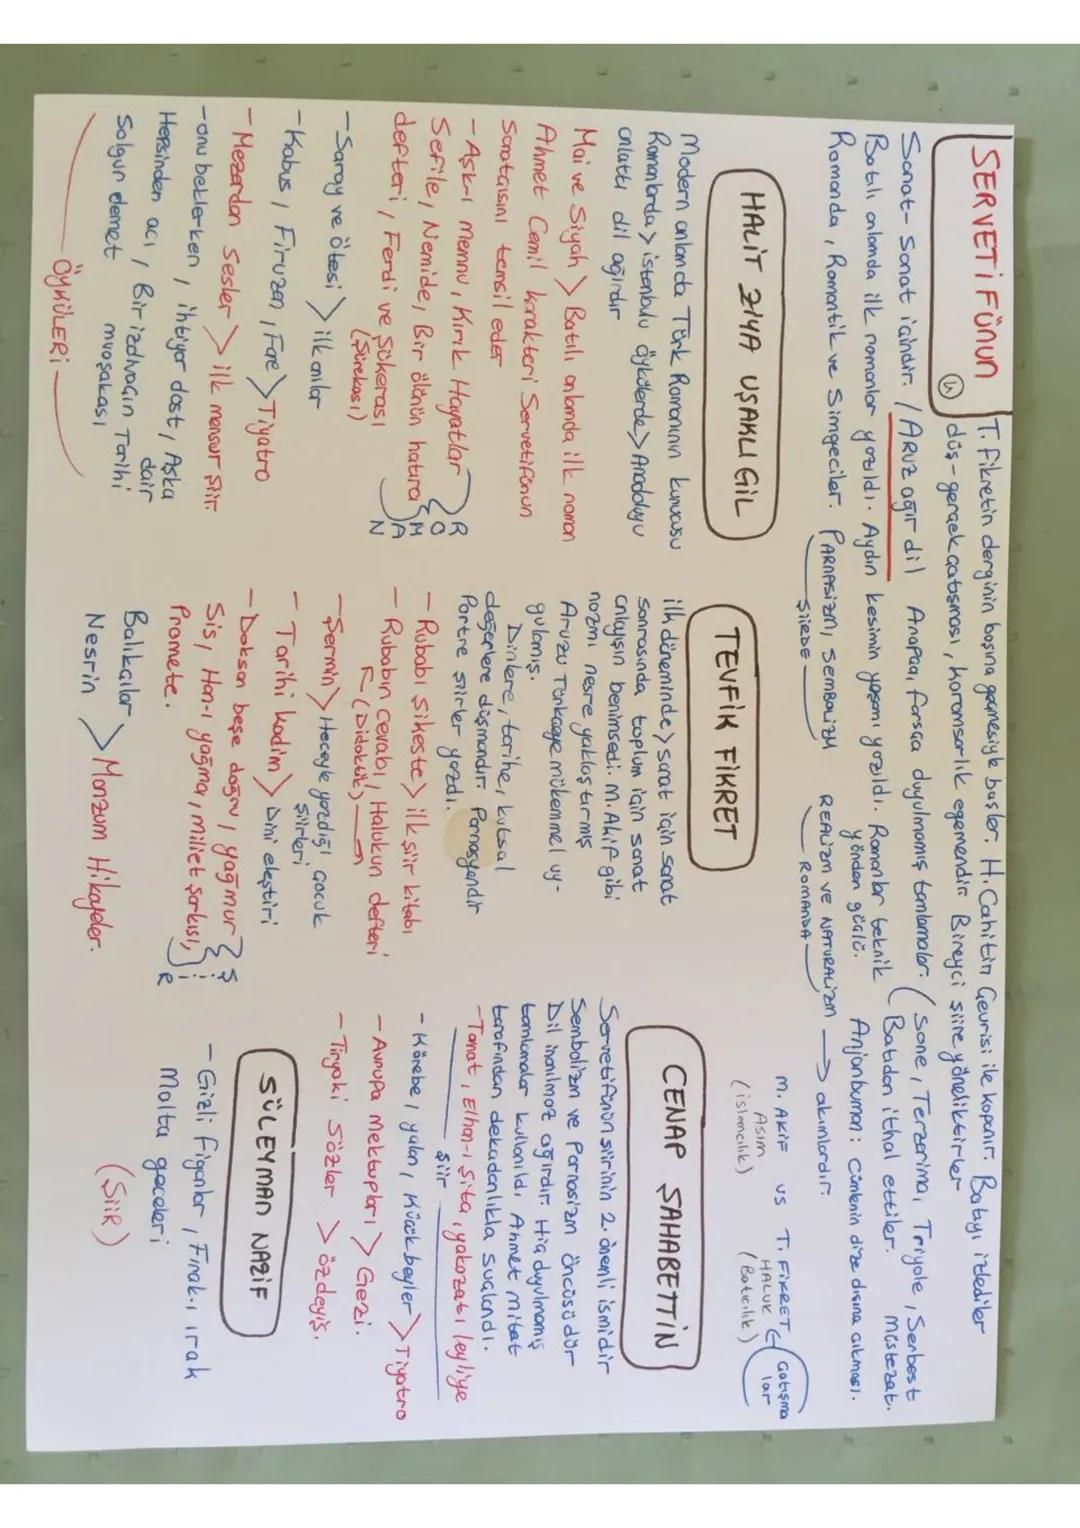 SERVETİ FÜNUN
T. Fikretin derginin başına geçmesiyle başlar. H. Cahitin Çeurisi ile kapanır. Batıyı izlediler
düş-gerçek çatışması, karamsarlık egemendir. Bireyci şiire yöneliktirler
Sanat - Sanat içindir. / ARUZ ağır dil Arapça, farsça duyulmamış tamlamalar. (Sone, Terzarima, Triyole, Serbest
Batılı anlamda ilk romanlar yazıldı. Aydın kesimin yaşamı yazıldı. Romanlar teknik (Batıdan ithal ettiler. müstezat.
yönden güçlü.
Romanda, Romantik ve Simgeciler. PARNASİZM, SEMBOLİZM REALİZM VE NATURALİZM → akımlardır. Anjanbuman: Cümlenin dize dışına çıkması.
ŞİİRDE ROMANDA
M. AKİF VS T. FİKRET Çatışma
ASIM HALUK lar
(islamcılık) (Batıcılık)
HALİT ZİYA UŞAKLIGİL
Modern anlamda Türk Romanının kurucusu
Romanlarda > istanbulu öykülerde > Anadoluyu
anlattı dil ağırdır
Mai ve Siyah > Batılı anlamda ilk roman
Ahmet Cemil karakteri Servetifünun
Sanatçısını temsil eder
- Aşk-ı memnu, Kırık Hayatlar
Sefile, Nemide, Bir ölünün hatıra
defteri, Ferdi ve şükerası
(Şürekası)
R
O
M
A
N
- Saray ve Ötesi > ilk anılar
- Kabus, Firuzan, Fare > Tiyatro
- Mezardan Sesler > ilk mensur şiir.
- onu beklerken, ihtiyar dost, Aşka
dair
Hepsinden acı, Bir izdivacın Tarihi
muaşakası
Solgun demet
ÖYKÜLERİ
TEVFİK FİKRET
ilk döneminde > sanat için sanat
sonrasında toplum için sanat
anlayışın benimsedi. M. Akif gibi
nazmı nesre yaklaştırmış
Aruzu Türkçeye mükemmel uy-
gulamış.
Dinlere, tarihe, kutsal
değerlere düşmandır. Parnasyendir
Portre şiirler yazdı.
- Rubabı şikeste > ilk şiir kitabı
- Rubabın cevabı, Halukun defteri
(Didaktik)
- Şermin > Heceyle yazdığı çocuk
şiirleri
- Tarihi kadim > Dini eleştiri
- Doksan beşe doğru, yağmur
Sis, Han-ı yağma, millet şarkısı,
Promete.
Ş
İ
İ
R
Balıkçılar
Nesrin > Manzum Hikayeler.
CENAP ŞAHABETTİN
Servetifünün şiirinin 2. önemli ismidir
Sembolizm ve Parnasizm öncüsüdür
Dil inanılmaz ağırdır. Hiç duyulmamış
tamlamalar kullanıldı. Ahmet mitat
tarafından dekadanlıkla suçlandı.
- Tamat, Elhan-ı şita, yakazat-ı leyliye
Şiir
- Körebe, yalan, Küçükbeyler > Tiyatro
- Avrupa mektupları > Gezi.
- Tiryaki Sözler > özdeyiş.
SÜLEYMAN NAZİF
- Gizli figanlar, Firak-ı ırak
Malta geceleri
(ŞİİR)